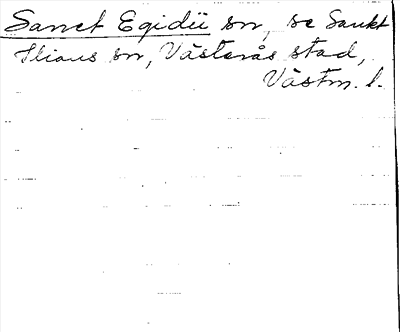 Sanct Egidii sn, se Sankt
Ilians sn, Västerås stad,
Västm. l.